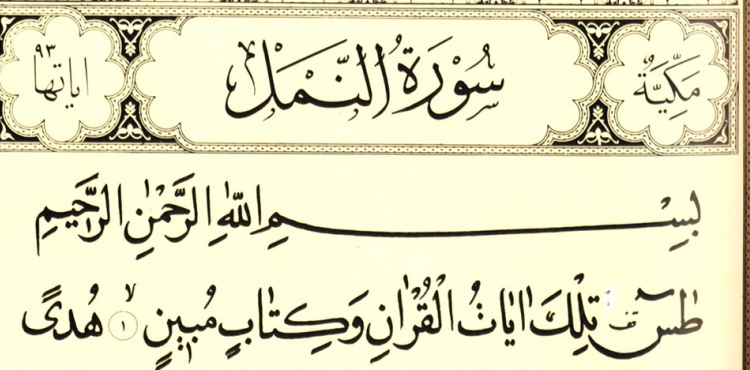 مَكِّيَّةٌ سُورَةُ النَّمْلِ اٰيَاتُهَا ٩٣
بِسْمِ اللّٰهِ الرَّحْمٰنِ الرَّحِيمِ
طٰسٓ تِلْكَ اٰيَاتُ الْقُرْاٰنِ وَكِتَابٍ مُبِينٍ ۙ ١ هُدًى